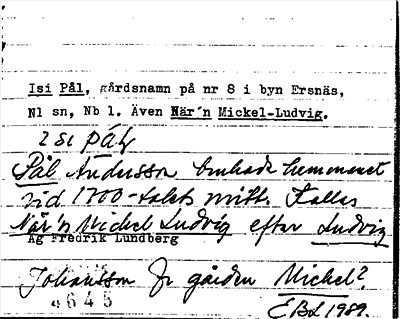 Isi Pål, gårdsnamn på nr 8 i byn Ersnäs,
Nl sn, Nb l. Även När'n Mickel-Ludvig.
isi pål,
Pål Andersson brukade hemmanet
vid 1700-talets mitt. Kallas
När'n Mickel Ludvig efter Ludvig
Äg Fredrik Lundberg
Johansson Jr gården Mickel?
4645
EBL 1989.